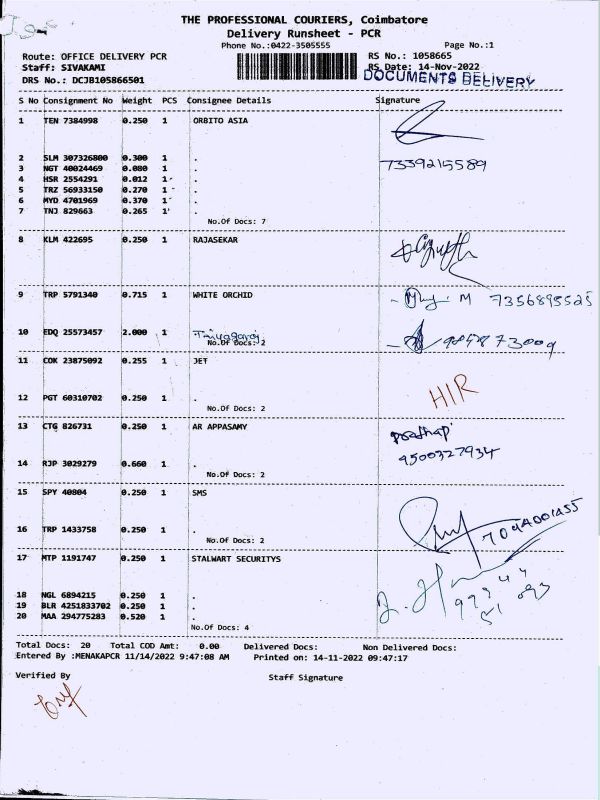 THE PROFESSIONAL COURIERS, Coimbatore
Delivery Runsheet - PCR
Phone No.:0422-3505555 Page No.:1
Route: OFFICE DELIVERY PCR RS No.: 1058665
Staff: SIVAKAMI RS Date: 14-Nov-2022
DRS No.: DCJB105866501 DOCUMENTS DELIVERY
S No Consignment No Weight PCS Consignee Details Signature
1 TEN 7384998 0.250 1 ORBITO ASIA
2 SLM 307326800 0.300 1 . 7339215589
3 NGT 40024469 0.080 1 .
4 HSR 2554291 0.012 1 .
5 TRZ 56933150 0.270 1 .
6 MYD 4701969 0.370 1 .
7 TNJ 829663 0.265 1 .
No.Of Docs: 7
8 KLM 422695 0.250 1 RAJASEKAR
9 TRP 5791340 0.715 1 WHITE ORCHID M 7356895525
10 EDQ 25573457 2.000 1
No.Of Docs: 2
11 COK 23875092 0.255 1 JET
12 PGT 60310702 0.250 1 . HIR
No.Of Docs: 2
13 CTG 826731 0.250 1 AR APPASAMY
9500327934
14 RJP 3029279 0.660 1 .
No.Of Docs: 2
15 SPY 40804 0.250 1 SMS
7094001455
16 TRP 1433758 0.250 1 .
No.Of Docs: 2
17 MTP 1191747 0.250 1 STALWART SECURITYS
18 NGL 6894215 0.250 1 .
19 BLR 4251833702 0.250 1 .
20 MAA 294775283 0.520 1 .
No.Of Docs: 4
Total Docs: 20 Total COD Amt: 0.00 Delivered Docs: Non Delivered Docs:
Entered By :MENAKAPCR 11/14/2022 9:47:08 AM Printed on: 14-11-2022 09:47:17
Verified By Staff Signature